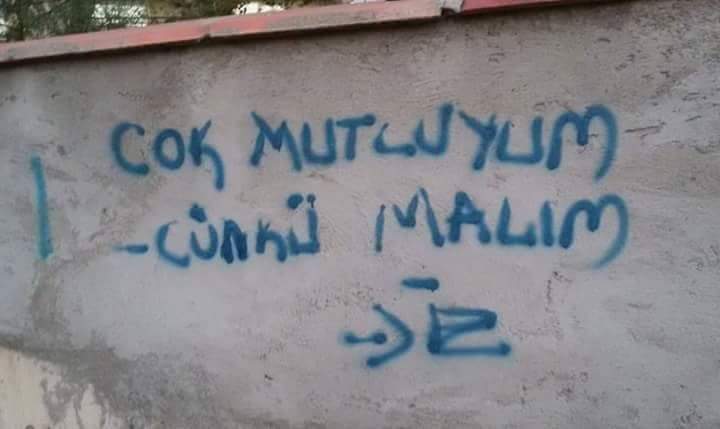 COK MUTLUYUM
-CÜNKÜ MALIM